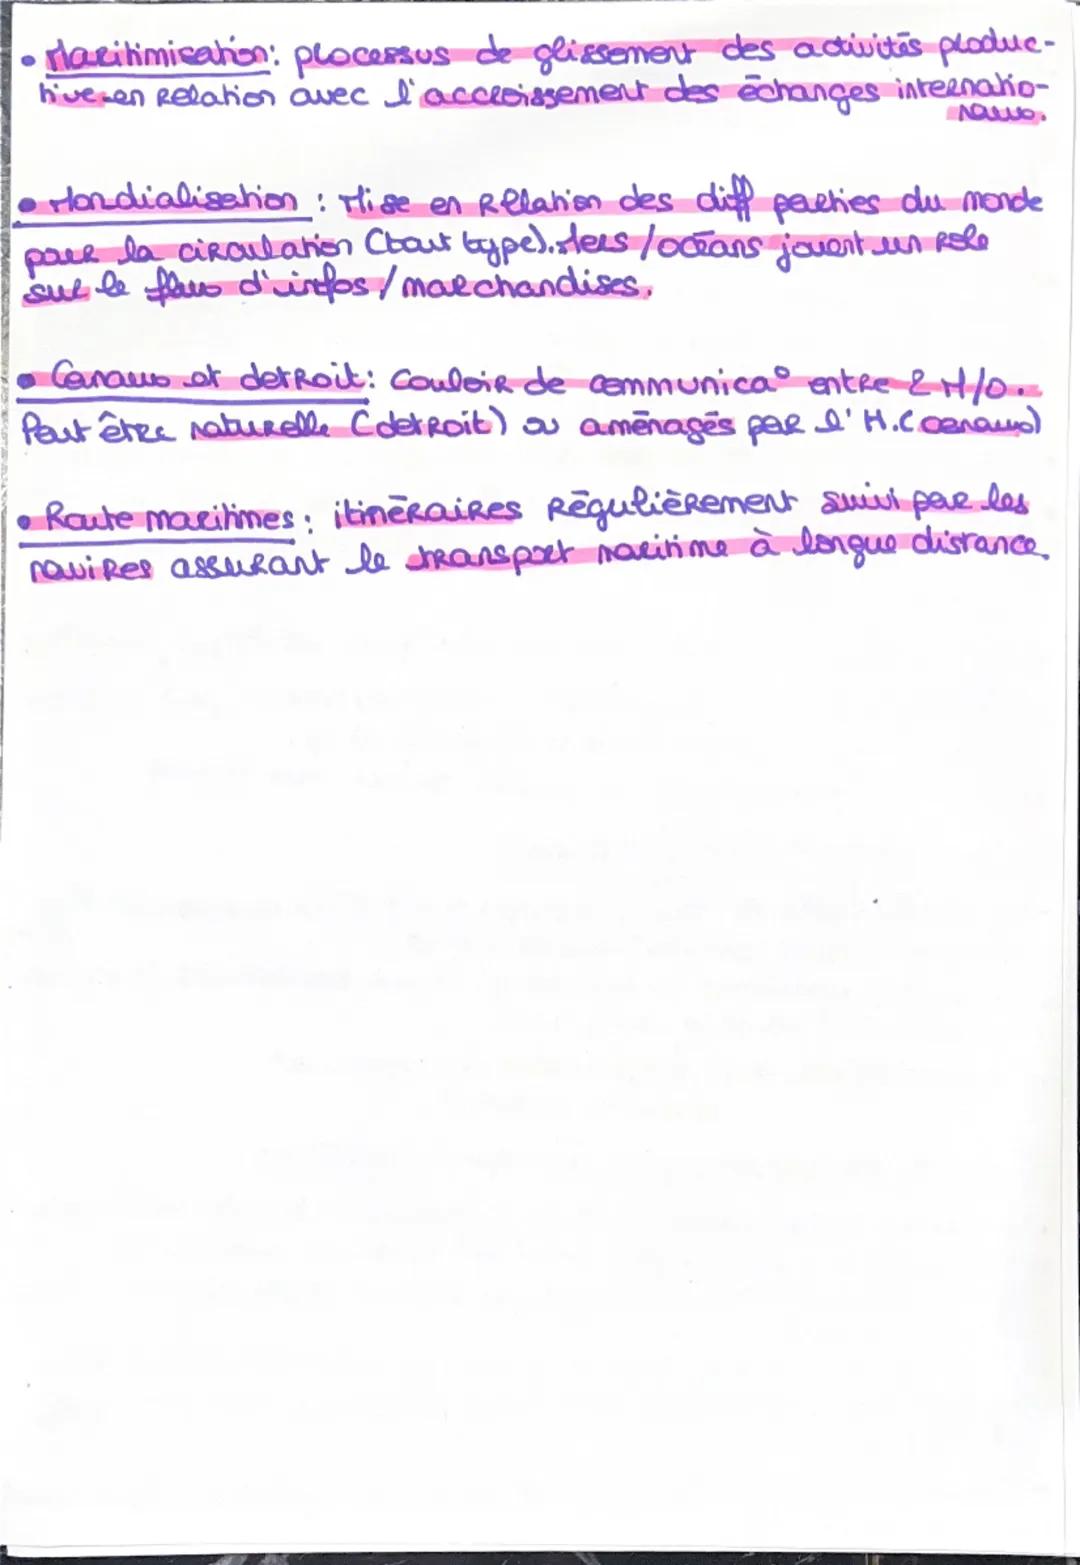 • Maritimisation: processus de glissement des activités produc-
tive en relation avec l'accroissement des échanges internatio-
naux.
• Mondialisation : Mise en Relation des diff parties du monde
pour la circulation (tout type). Mers/océans jouent un role
sur le flux d'infos/marchandises.
• Canaux et detroit: Couloir de communica° entre 2 M/O.
Peut être naturelle (detroit) ou aménagés par l'H. (canaux)
• Route maritimes : itinéraires Régulièrement suivi par les
navires assurant le transport maritime à longue distance.